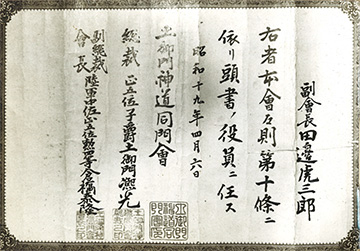 副會長田邊虎三郎
右者本會々則第十條ニ
依リ頭書ノ役員ニ任ス
昭和十九年四月六日
土御門神道同門會
総裁 正五位子爵土御門凞光
副総裁
會長 陸軍中佐正五位勲四等倉橋